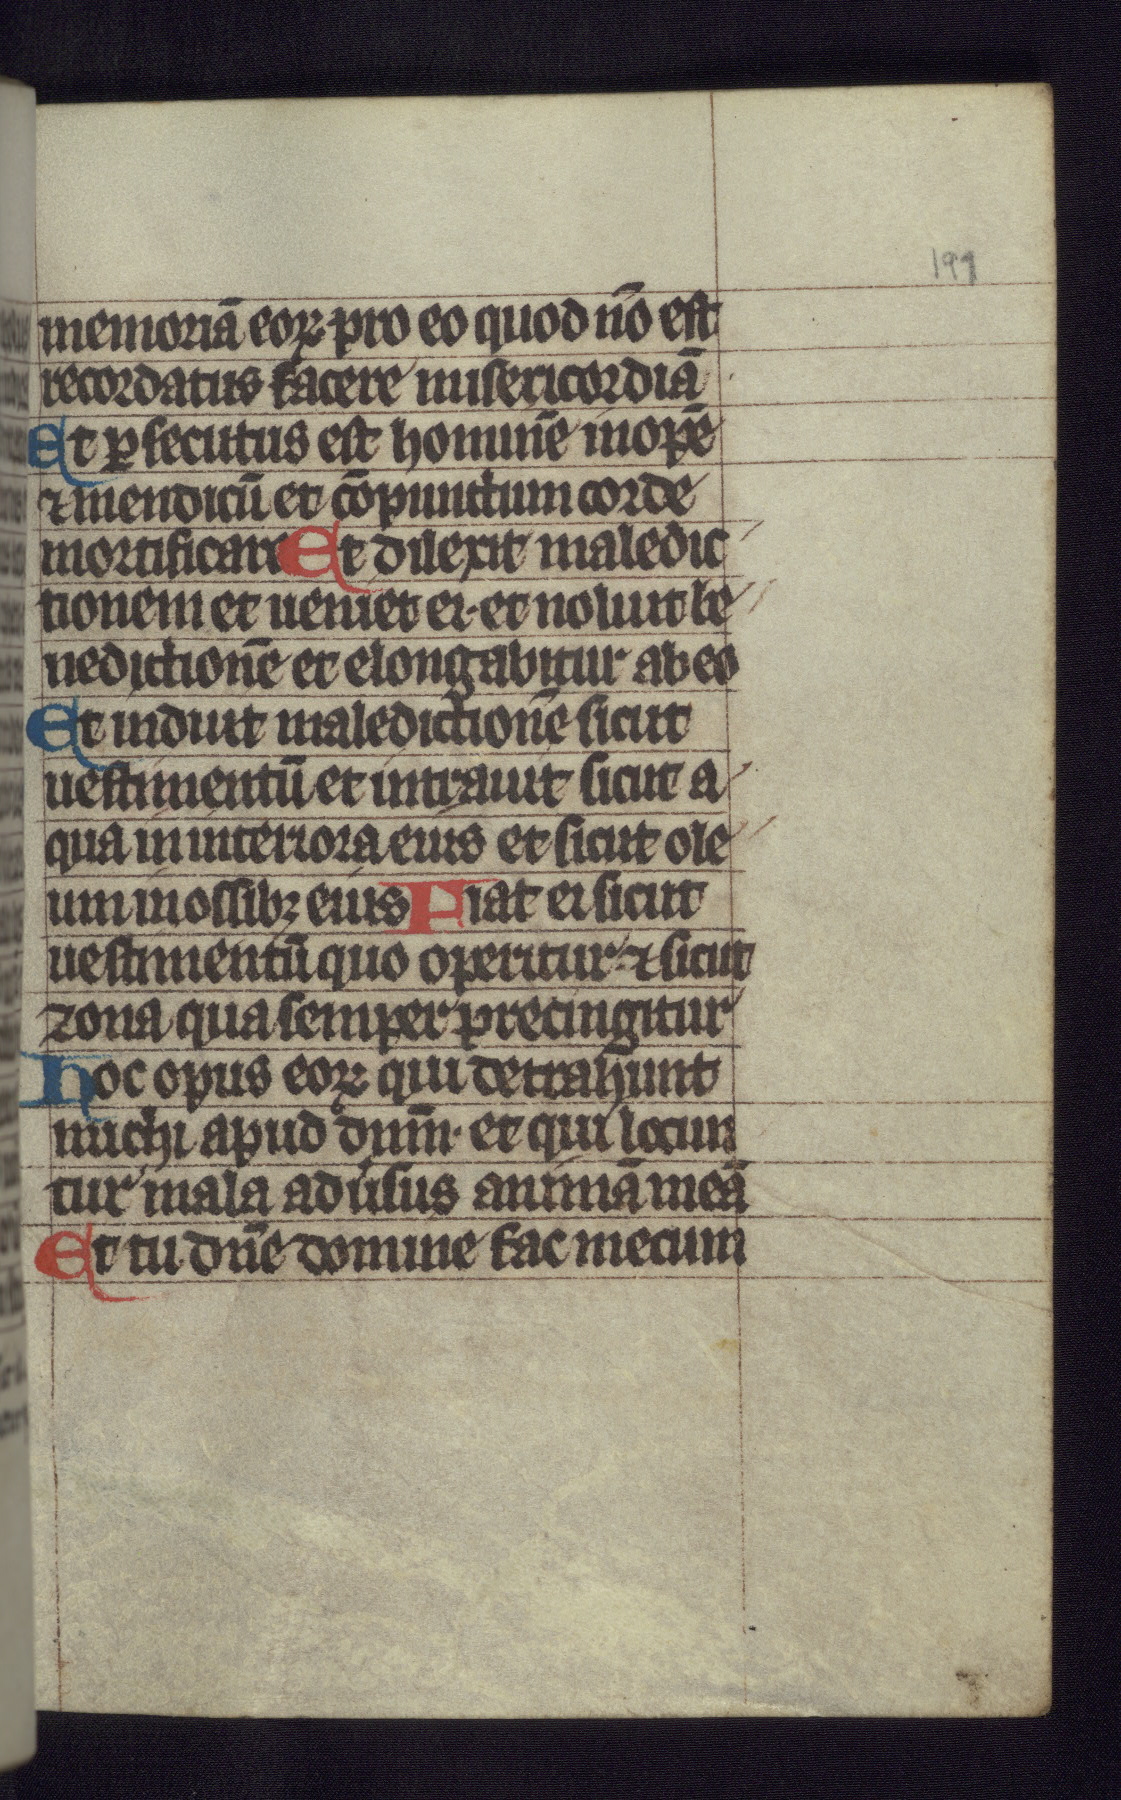 199
memoriā eoꝝ pro eo quod nō est
recordatus facere misericordiā
Et ꝑsecutus est hominē inopē
⁊ mendicū et cōpunctum corde
mortificare Et dilexit maledic
tionem et ueniet ei· et noluit be
nedictionē et elongabitur ab eo
Et induit maledictionē sicut
uestimentū et intrauit sicut a
qua in interiora eius et sicut ole
um in ossibꝫ eius Fiat ei sicut
uestimentū quo operitur· ⁊ sicut
zona qua semper precingitur
Hoc opus eoꝝ qui detrahunt
michi apud dn̄m· et qui locun
tur mala aduısus animā meā
Et tu dn̄e domine fac mecum